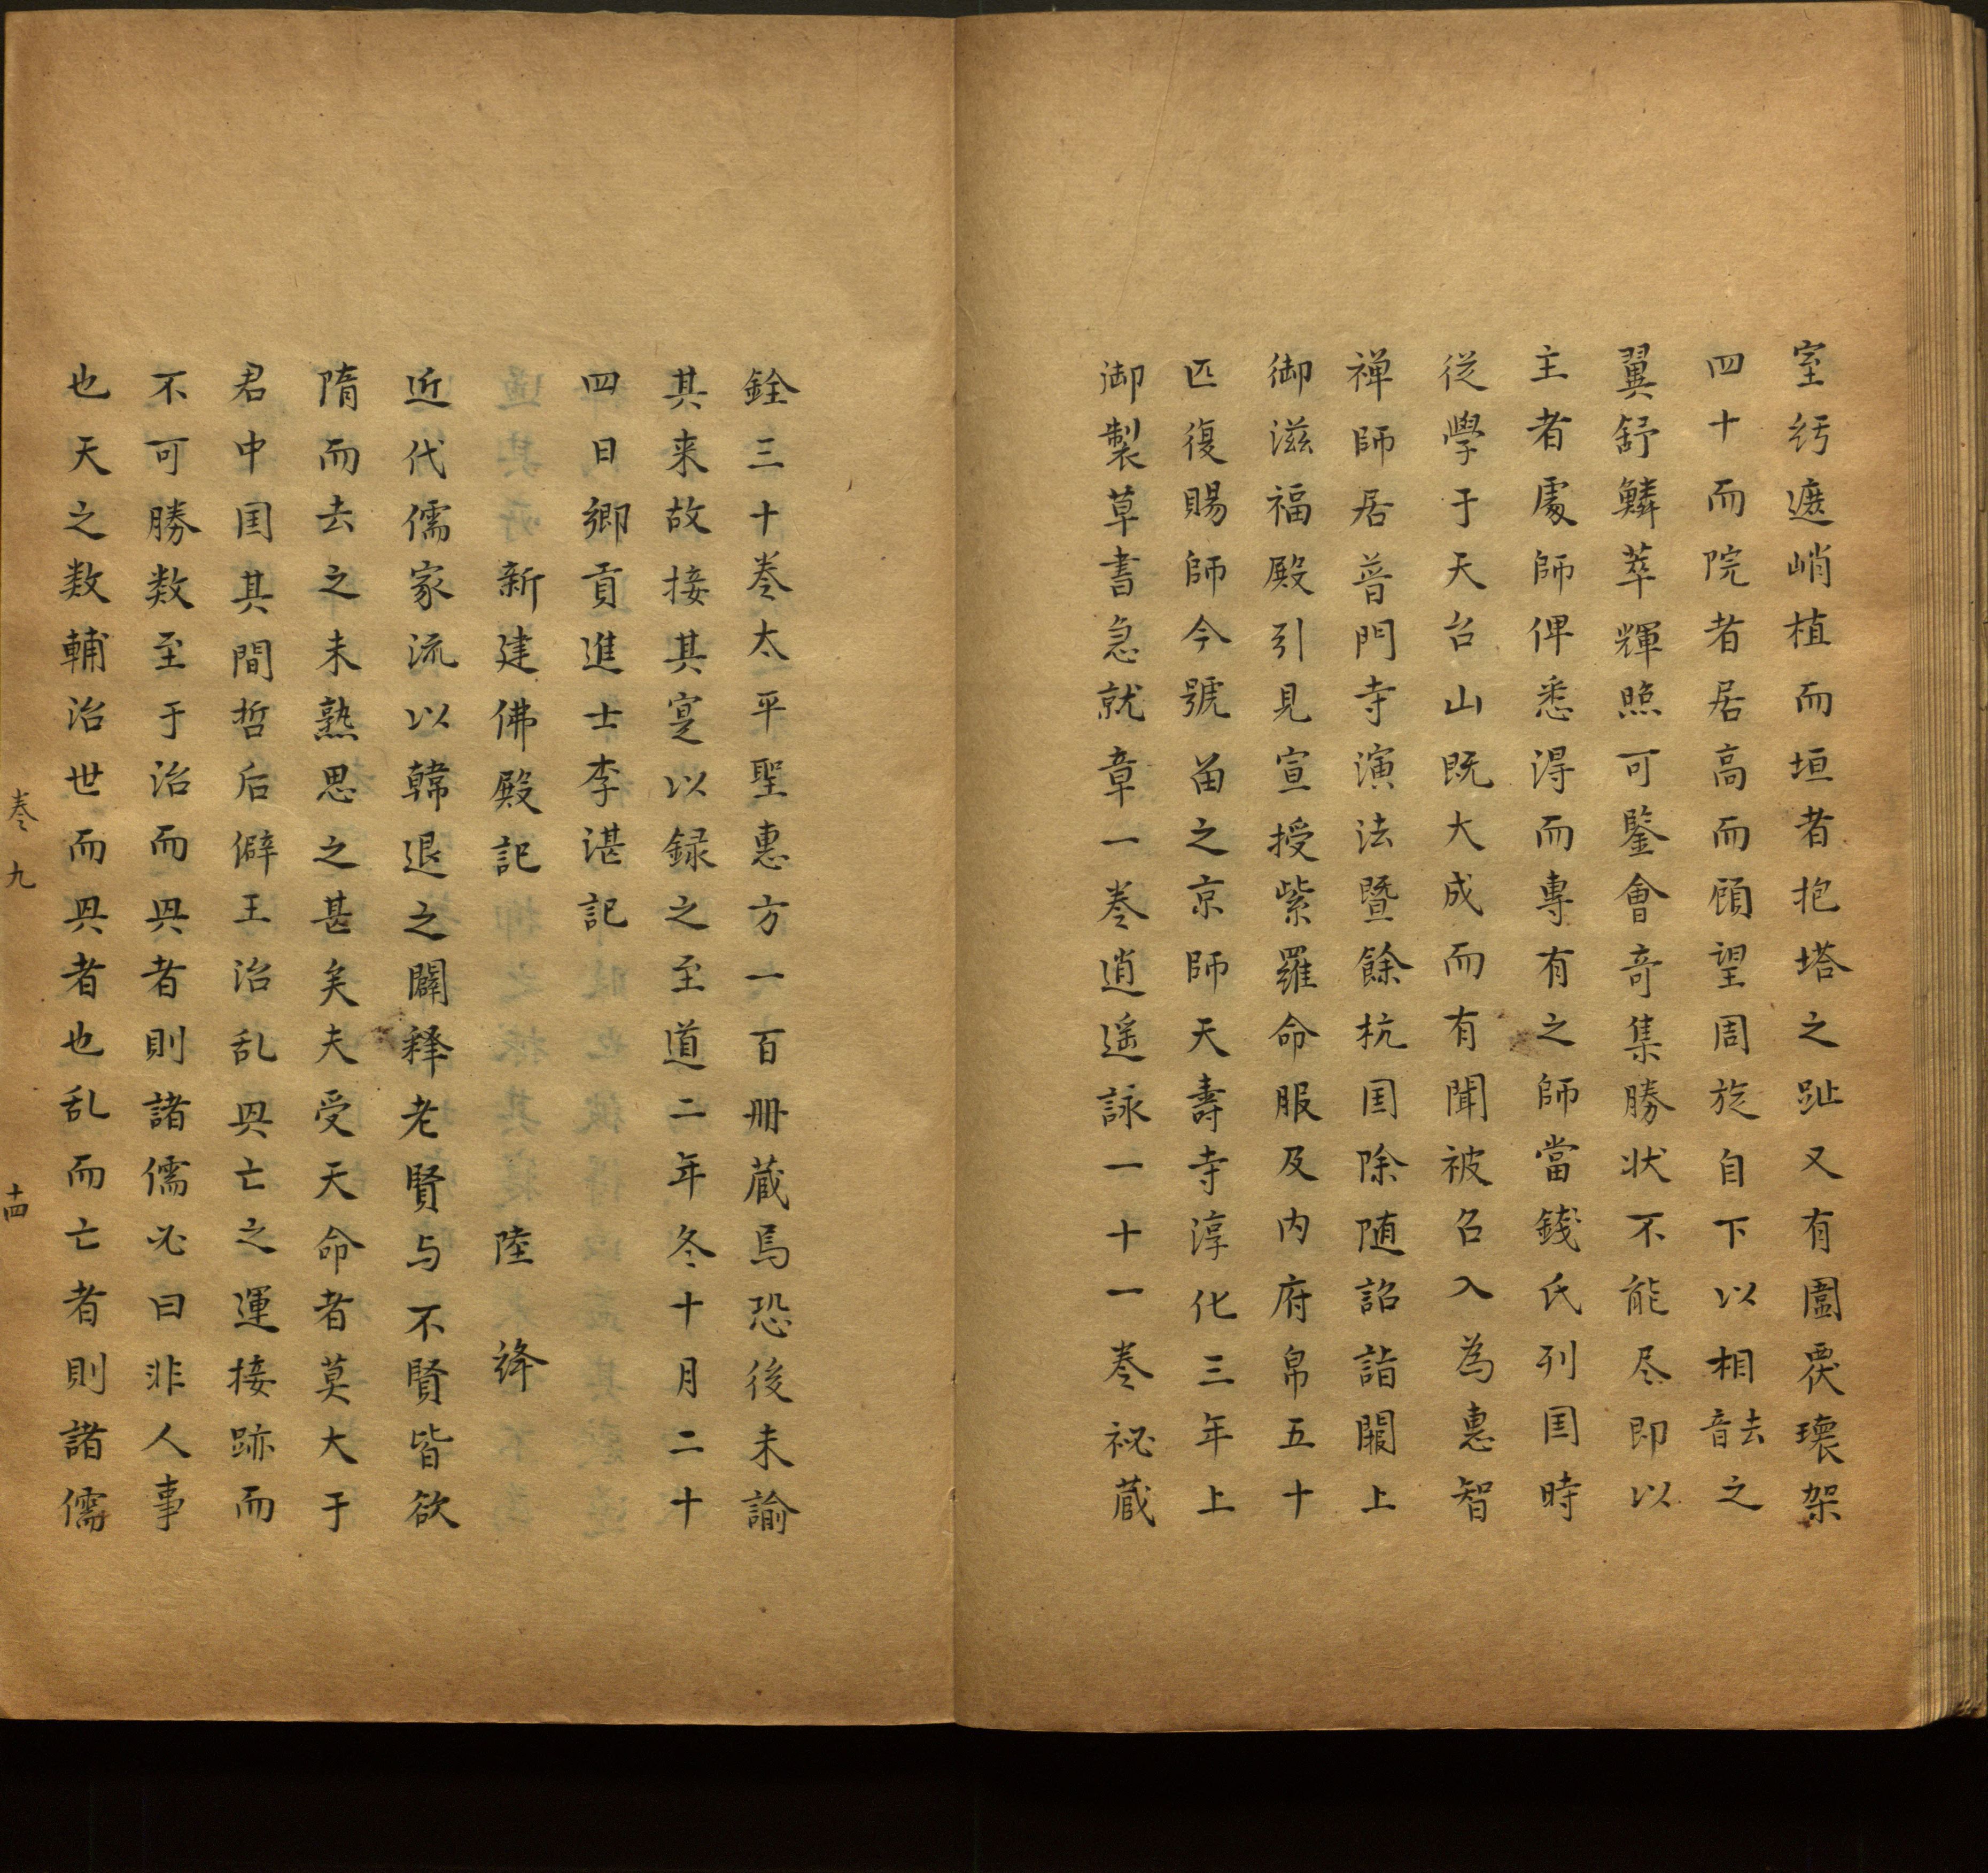 室紆遮峭植而垣者抱塔之趾又有圊溷瓌架
四十而院者居高而顧望周旋自下以相音去之
翼舒鱗萃輝照可鑒會奇集勝状不能尽即以
主者處師俾悉得而專有之師當錢氏列囯時
從學于天台山既大成而有聞被召入為惠智
禅師居普門寺演法暨餘杭囯除随詔詣闕上
御滋福殿引見宣授紫羅命服及内府帛五十
匹復賜師今號畱之京師天壽寺淳化三年上
御製草書急就章一卷逍遥詠一十一卷祕蔵
銓三十卷太平聖惠方一百冊蔵焉恐後未諭
其来故接其寔以録之至道二年冬十月二十
四日鄉貢進士李湛記
新建佛殿記 陸絳
近代儒家流以韓退之闢释老賢与不賢皆欲
隋而去之未熟思之甚矣夫受天命者莫大于
君中囯其間哲后僻王治乱㒷亡之運接跡而
不可勝数至于治而㒷者則諸儒必曰非人事
也天之数輔治世而㒷者也乱而亡者則諸儒
卷九 十四